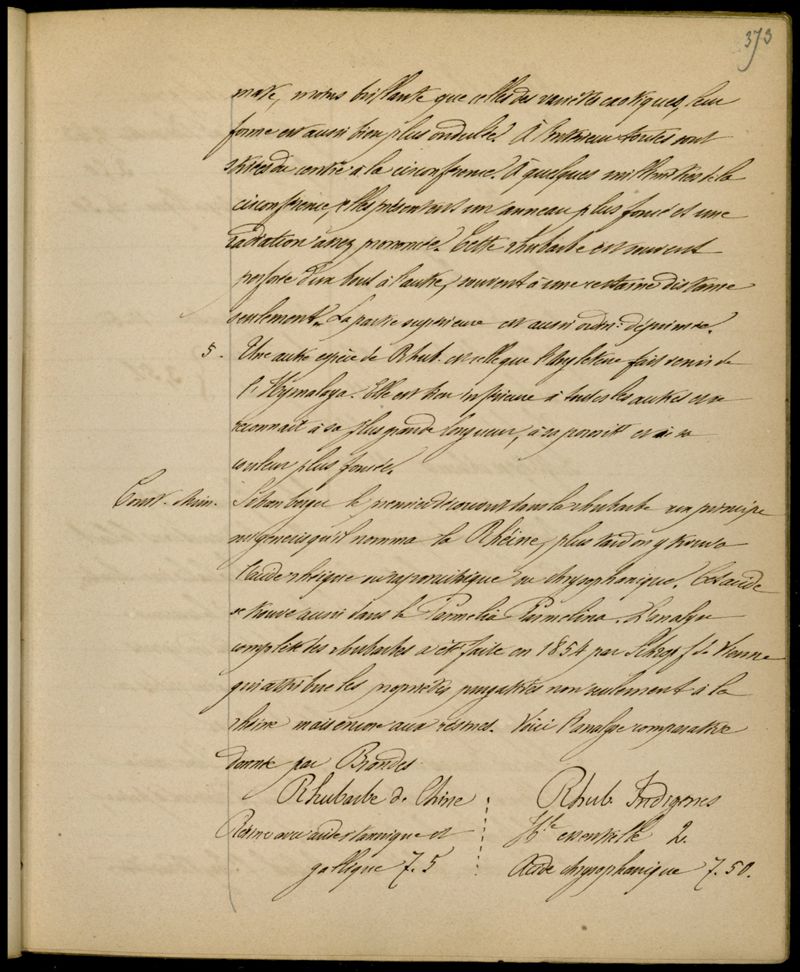 373
mate, moins brillante que celles des variétés exotiques, leur
forme est aussi bien plus ondulée. À l'intérieur toutes sont
striées du centre à la circonférence. À quelques millimètres de la
circonférence, elles présentent un anneau plus foncé et une
radiation assez prononcée. Cette rhubarbe est souvent
perforée d'un bout à l'autre, souvent à une certaine distance
seulement. La partie supérieure est aussi ordin.t déprimée.
5. Une autre espèce de Rhub. est celle que l'Angleterre fait venir de
l'Hymalaya. Elle est bien inférieure à toutes les autres et se
reconnait à sa plus grande longueur, à sa porosité et à sa
couleur plus foncée.
Const. chim. le premier découvrit dans la rhubarbe un principe
qu'il nomma la Rhéine, plus tard on y trouva
l'acide rhéique ou raponticique ou chrysophanique. Cet acide
se trouve aussi dans le Parmelia Parmelina. L'analyse
complète des rhubarbes a été faite en 1854 par Schroff de Vienne
qui attribue les propriétés purgatives non seulement à la
rhéine mais encore aux résines. Voici l'analyse comparative
donnée par Brandes
Rhubarbe de Chine Rhub. Indigènes
Résine avec acides tannique et H.le essentielle 2.
gallique 7.5 Acide chrysophanique 7.50.